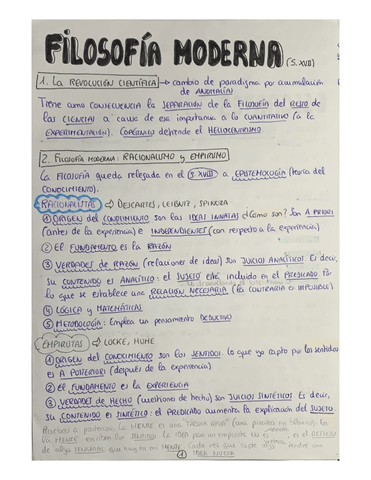 FILOSOFÍA MODERNA (S. XVII)
1. LA REVOLUCIÓN CIENTÍFICA → cambio de paradigma por acumulación
de ANOMALÍA
Tiene como CONSECUENCIA la SEPARACIÓN de la FILOSOFÍA del RESTO de
las CIENCIAS a causa de esa importancia a lo CUANTITATIVO (a la
EXPERIMENTACIÓN). COPÉRNICO defiende el HELIOCENTRISMO.
2. FILOSOFÍA MODERNA: RACIONALISMO y EMPIRISMO
La FILOSOFÍA queda relegada en el S. XVII a EPISTEMOLOGÍA (teoría del
CONOCIMIENTO).
RACIONALISTAS ⇒ DESCARTES, LEIBNIZ, SPINOZA
① ORIGEN del CONOCIMIENTO son las IDEAS INNATAS ¿Cómo son? Son A PRIORI
(antes de la experiencia) e INDEPENDIENTES (con respecto a la experiencia)
② El FUNDAMENTO es la RAZÓN
③ VERDADES DE RAZÓN (relaciones de ideas) son JUICIOS ANALÍTICOS. Es decir,
su CONTENIDO es ANALÍTICO: el SUJETO está incluido en el PREDICADO por
lo que se establece una RELACIÓN NECESARIA (lo contrario es imposible)
④ LÓGICA y MATEMÁTICAS
⑤ METODOLOGÍA: Emplea un pensamiento DEDUCTIVO
EMPIRISTAS ⇒ LOCKE, HUME
① ORIGEN del CONOCIMIENTO son los SENTIDOS. lo que yo capto por los sentidos
es A POSTERIORI (después de la experiencia)
② el FUNDAMENTO es la EXPERIENCIA
③ VERDADES DE HECHO (cuestiones de hecho) son JUICIOS SINTÉTICOS. Es decir,
su CONTENIDO es SINTÉTICO: el PREDICADO aumenta la explicación del SUJETO.
la MENTE es una "TABULA RASA" (una pizarra en blanco). En
la MENTE escriben los SENTIDOS. la IDEA
que hay en mi MENTE. Cada vez que capto algo tendré una
1
IDEA NUEVA